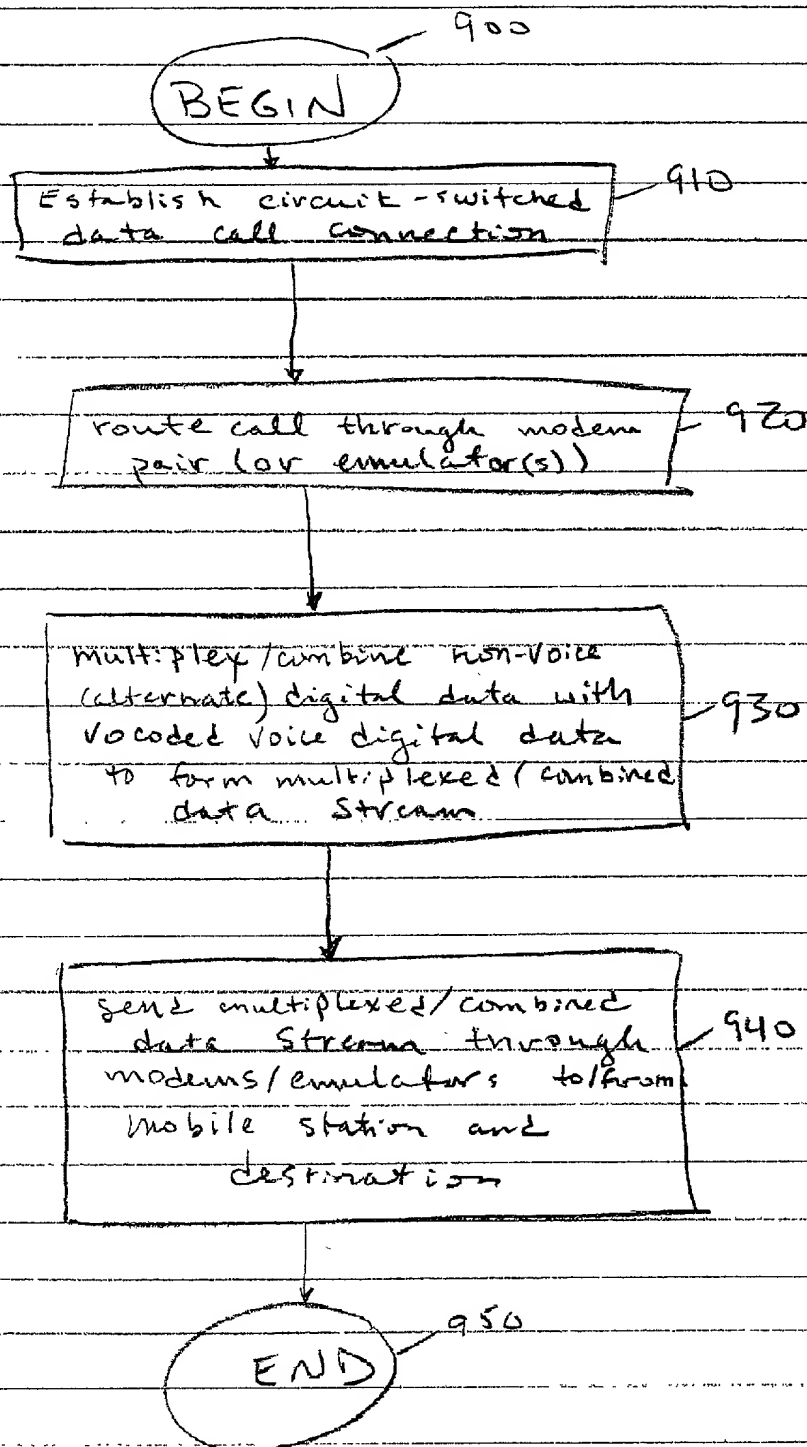 900
BEGIN
910
Establish circuit-switched
data call connection
920
route call through modem
pair (or emulator(s))
930
multiplex/combine non-voice
(alternate) digital data with
vocoded voice digital data
to form multiplexed/combined
data stream
940
send multiplexed/combined
data stream through
modems/emulators to/from
mobile station and
destination
950
END